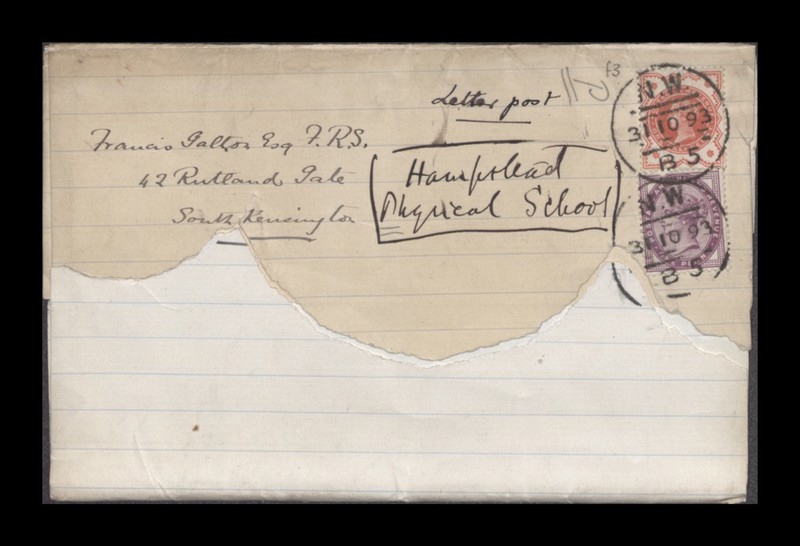 f3
Letter post
Francis Galton Esq F.R.S.
42 Rutland Gate
South Kensington
Hampstead
Physical School
N.W
31 10 93
B 5
N.W
31 10 93
B 5